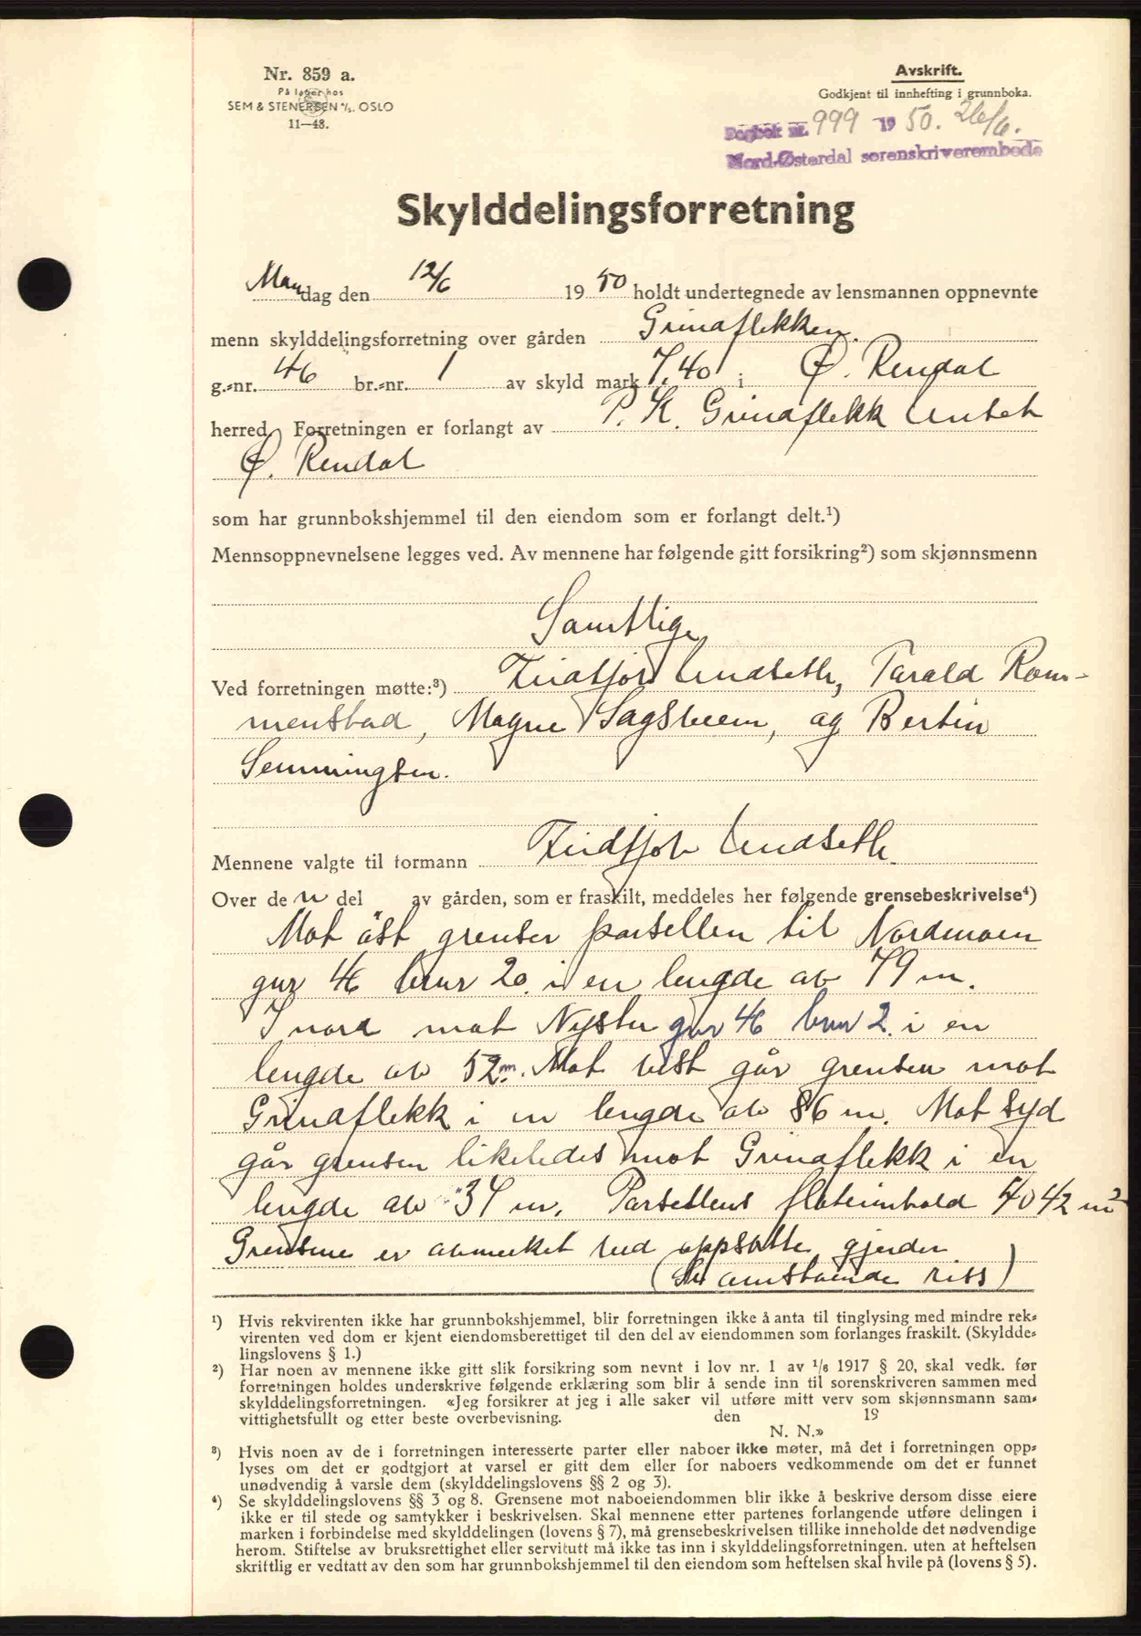 Nr. 859 a.
På lager hos
SEM & STENERSEN A/S. OSLO
11—48.
Avskrift.
Godkjent til innhefting i grunnboka.
Dagbok nr. 999 1950. 26/6.
Nord-Østerdal sorenskriverembede
Skylddelingsforretning
Mandag den 12/6 1950 holdt undertegnede av lensmannen oppnevnte
menn skylddelingsforretning over gården Grinaflekken
g.-nr. 46 br.-nr. 1 av skyld mark 7,40 i Ø. Rendal
herred. Forretningen er forlangt av P. K. Grinaflekk Unset
Ø. Rendal
som har grunnbokshjemmel til den eiendom som er forlangt delt.¹)
Mennsoppnevnelsene legges ved. Av mennene har følgende gitt forsikring²) som skjønnsmenn
Samtlige
Ved forretningen møtte:³) Fridtjof Undseth, Tarald Rom-
menstad, Magne Sagsveen, og Bertin
Semmingsen.
Mennene valgte til formann Fridtjof Undseth.
Over de n del av gården, som er fraskilt, meddeles her følgende grensebeskrivelse⁴)
Mot øst grenser parsellen til Nordmoen
gnr 46 bnr 20. i en lengde av 79 m.
I nord mot Nystu gnr 46 bnr 2. i en
lengde av 52 m. Mot vest går grensen mot
Grinaflekk i en lengde av 86 m. Mot syd
går grensen likeledes mot Grinaflekk i en
lengde av 37 m. Parsellens flateinnhold 4042 m²
Grensene er avmerket ved oppsatte gjerder
(Se omstående riss)
¹) Hvis rekvirenten ikke har grunnbokshjemmel, blir forretningen ikke å anta til tinglysing med mindre rek-
virenten ved dom er kjent eiendomsberettiget til den del av eiendommen som forlanges fraskilt. (Skyldde-
lingslovens § 1.)
²) Har noen av mennene ikke gitt slik forsikring som nevnt i lov nr. 1 av 1/6 1917 § 20, skal vedk. før
forretningen holdes underskrive følgende erklæring som blir å sende inn til sorenskriveren sammen med
skylddelingsforretningen. «Jeg forsikrer at jeg i alle saker vil utføre mitt verv som skjønnsmann sam-
vittighetsfullt og etter beste overbevisning. den 19
N. N.»
³) Hvis noen av de i forretningen interesserte parter eller naboer ikke møter, må det i forretningen opp-
lyses om det er godtgjort at varsel er gitt dem eller for naboers vedkommende om det er funnet
unødvendig å varsle dem (skylddelingslovens §§ 2 og 3).
⁴) Se skylddelingslovens §§ 3 og 8. Grensene mot naboeiendommen blir ikke å beskrive dersom disse eiere
ikke er til stede og samtykker i beskrivelsen. Skal mennene etter partenes forlangende utføre delingen i
marken i forbindelse med skylddelingen (lovens § 7), må grensebeskrivelsen tillike inneholde det nødvendige
herom. Stiftelse av bruksrettighet eller servitutt må ikke tas inn i skylddelingsforretningen. uten at heftelsen
skriftlig er vedtatt av den som har grunnbokshjemmel til den eiendom som heftelsen skal hvile på (lovens § 5).